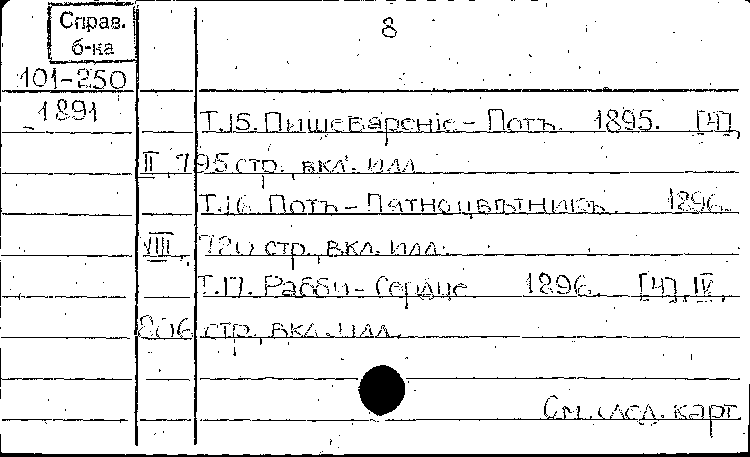 Справ.
б-ка
8
101-250
1891
Т.15. Пищеваренiе - Потъ. 1895. [4],
II, 795 стр., вкл. илл.
Т.16. Потъ - Пятноцвѣтникъ. 1896.
VIII, 720 стр., вкл. илл.
Т.17. Рабби - Сердце 1896. [4], IV,
806 стр., вкл. илл.
См. след. карт.